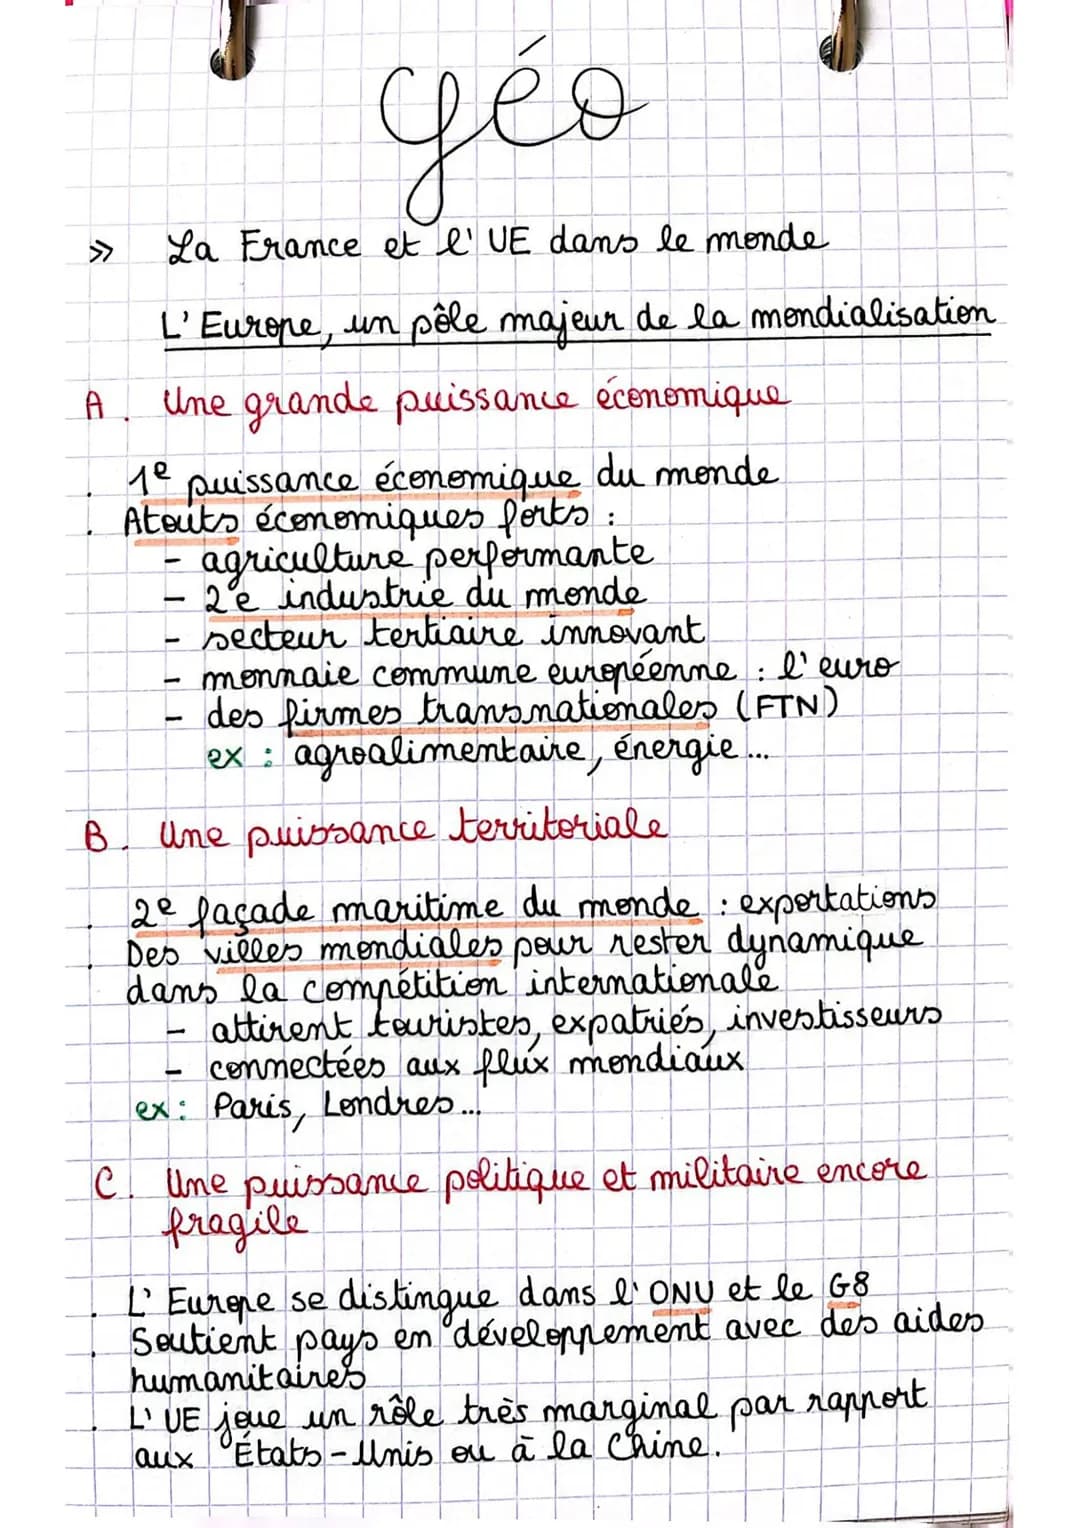 Géo
» La France et l'UE dans le monde
L'Europe, un pôle majeur de la mondialisation
A. Une grande puissance économique
. 1e puissance économique du monde
. Atouts économiques forts :
- agriculture performante
- 2e industrie du monde
- secteur tertiaire innovant
- monnaie commune européenne : l'euro
- des firmes transnationales (FTN)
ex : agroalimentaire, énergie...
B. Une puissance territoriale
. 2e façade maritime du monde : exportations
. Des villes mondiales pour rester dynamique
dans la compétition internationale
- attirent touristes, expatriés, investisseurs
- connectées aux flux mondiaux
ex : Paris, Londres...
C. Une puissance politique et militaire encore
fragile
. L'Europe se distingue dans l'ONU et le G8
. Soutient pays en développement avec des aides
humanitaires
. L'UE joue un rôle très marginal par rapport
aux États-Unis ou à la Chine.